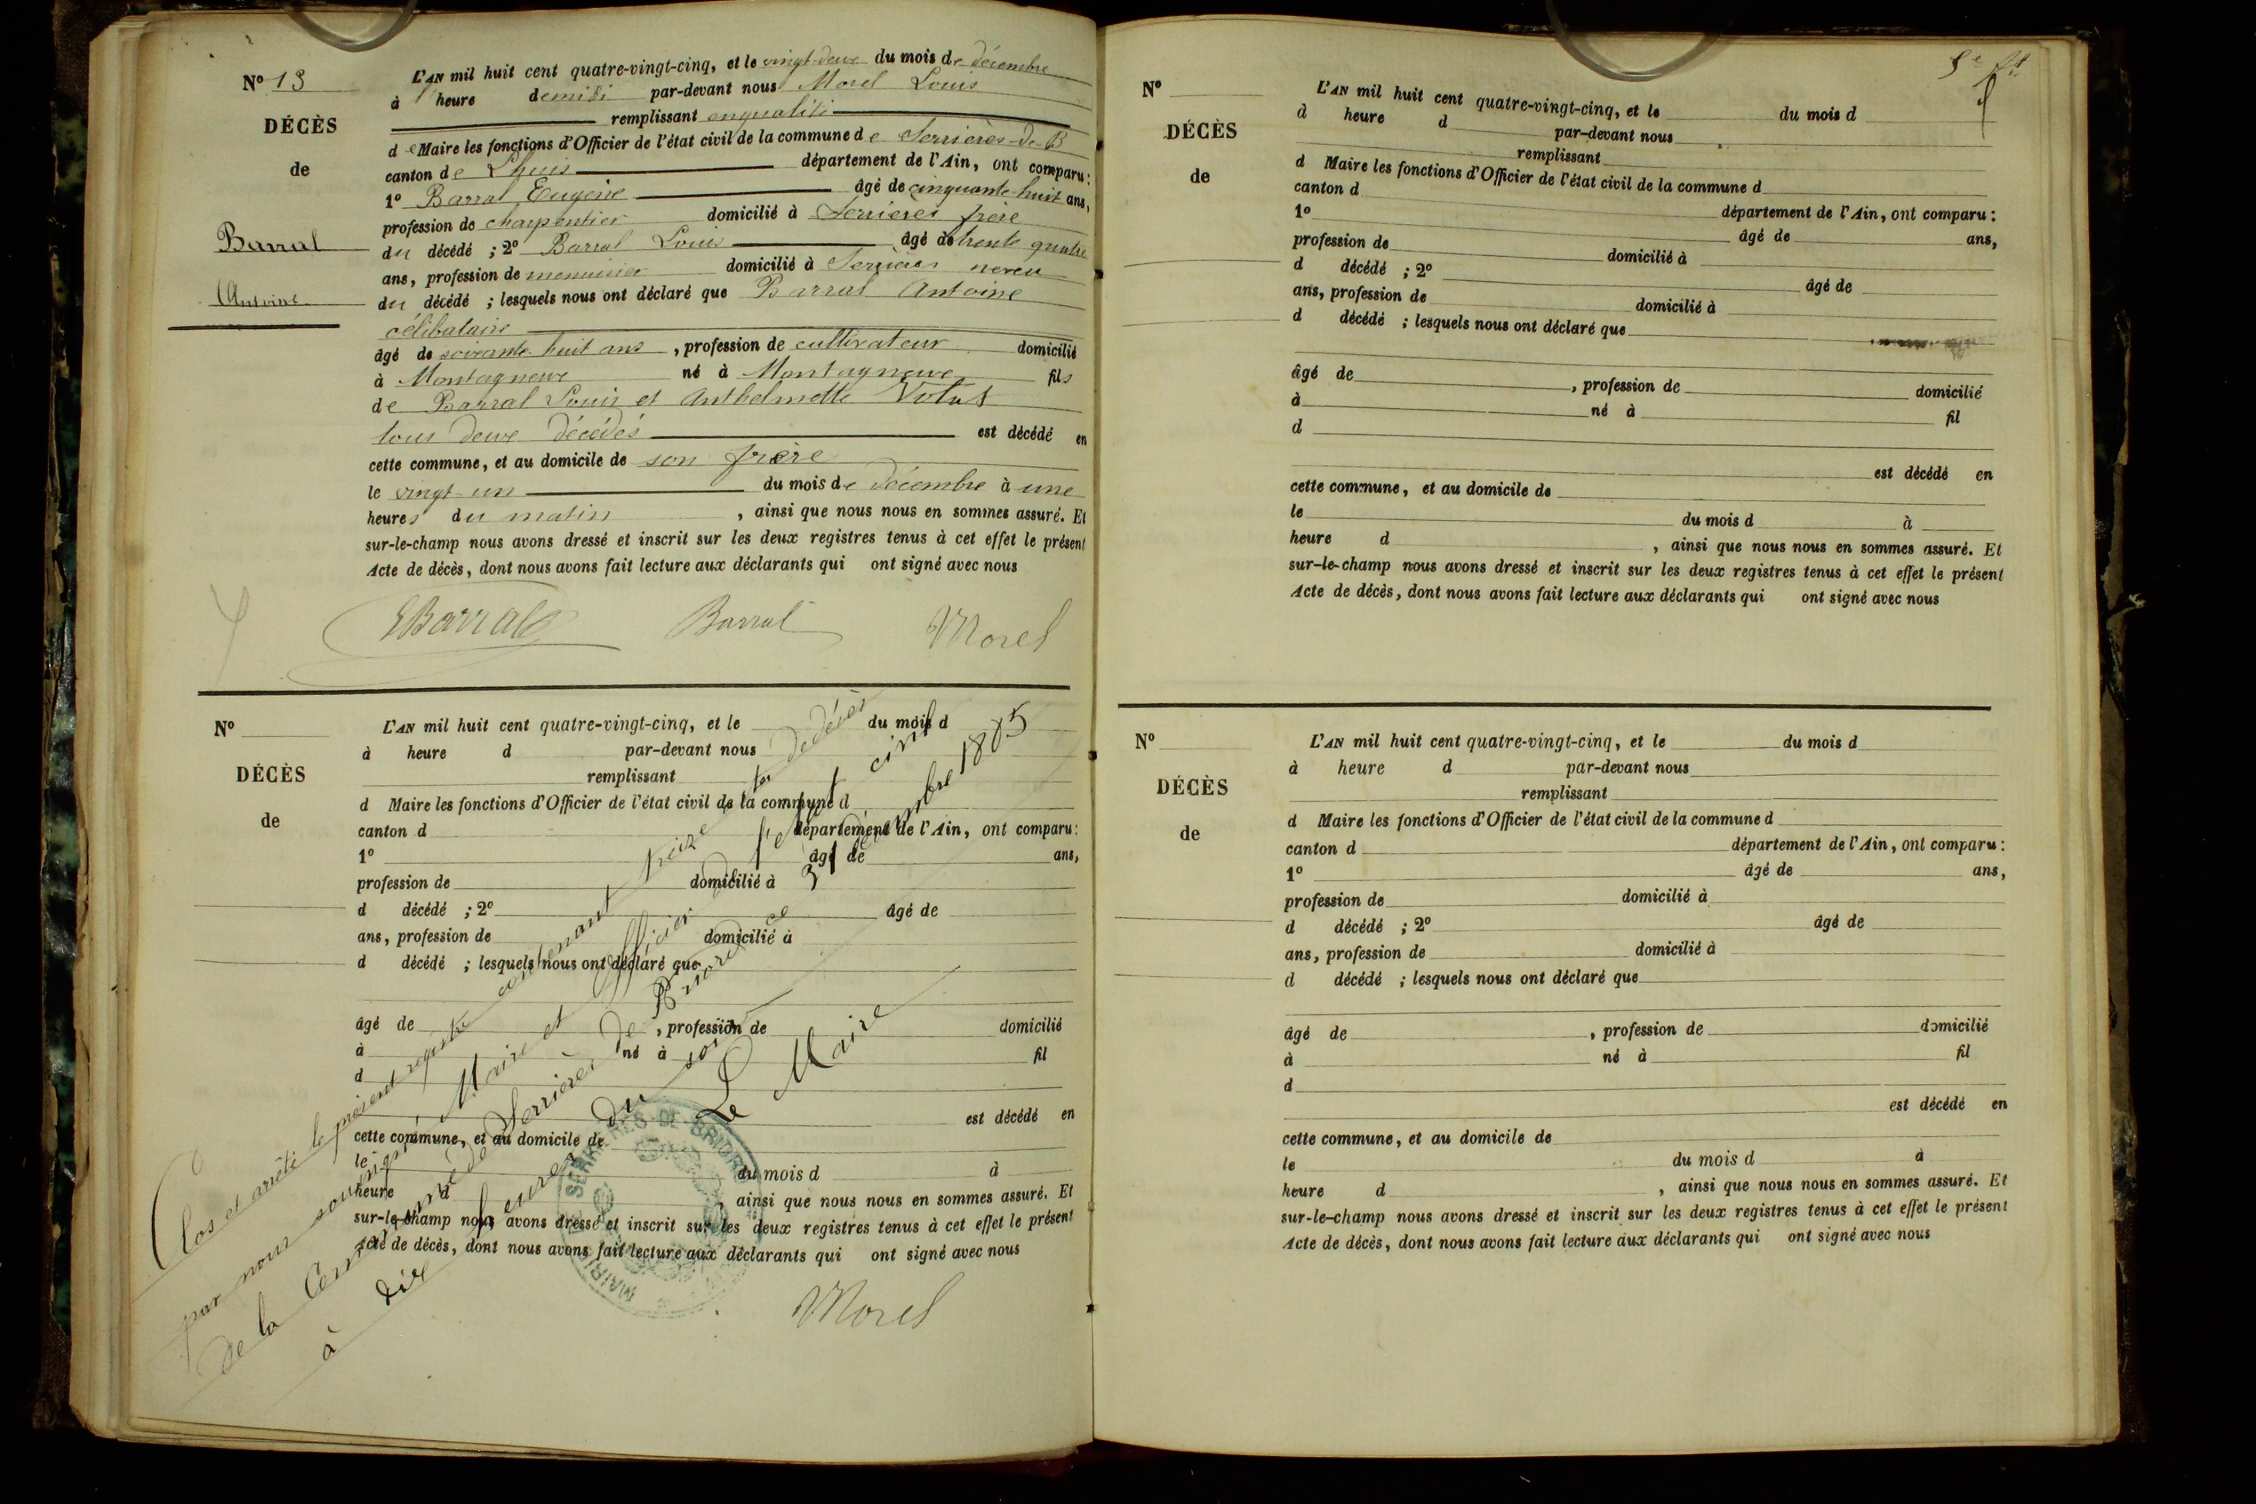 N° 13
DÉCÈS
de
Barral
Antoine
L'AN mil huit cent quatre-vingt-cinq, et le vingt-deux du mois de décembre
à heure demidi par-devant nous Morel Louis
remplissant en qualité
de Maire les fonctions d'Officier de l'état civil de la commune de Serrières-de-B
canton de Lhuis département de l'Ain, ont comparu :
1° Barral Eugène âgé de cinquante-huit ans,
profession de charpentier domicilié à Serrières frère
du décédé ; 2° Barral Louis âgé de trente quatre
ans, profession de menuisier domicilié à Serrières neveu
du décédé ; lesquels nous ont déclaré que Barral Antoine
célibataire
âgé de soixante huit ans, profession de cultivateur domicilié
à Montagneux né à Montagneux fils
de Barral Louis et Anthelmette
tous deux décédés est décédé en
cette commune, et au domicile de son frère
le vingt-un du mois de décembre à une
heures du matin, ainsi que nous nous en sommes assuré. Et
sur-le-champ nous avons dressé et inscrit sur les deux registres tenus à cet effet le présent
Acte de décès, dont nous avons fait lecture aux déclarants qui ont signé avec nous
EBarral Barral Morel
N°
DÉCÈS
de
L'AN mil huit cent quatre-vingt-cinq, et le du mois d
à heure d par-devant nous
remplissant
d Maire les fonctions d'Officier de l'état civil de la commune d
canton d département de l'Ain, ont comparu :
1° âgé de ans,
profession de domicilié à
d décédé ; 2° âgé de
ans, profession de domicilié à
d décédé ; lesquels nous ont déclaré que
âgé de , profession de domicilié
à né à fil
d
est décédé en
cette commune, et au domicile de
le du mois d à
heure d , ainsi que nous nous en sommes assuré. Et
sur-le-champ nous avons dressé et inscrit sur les deux registres tenus à cet effet le présent
Acte de décès, dont nous avons fait lecture aux déclarants qui ont signé avec nous
Clos et arrêté le présent registre contenant treize de décès
par nous soussigné Maire et officier de l'état civil
de la Commune de Serrières de Briord ce 31 décembre 1885
à dix heures du soir
Le Maire
MAIRIE DE SERRIÈRES DE BRIORD
Morel
N°
DÉCÈS
de
L'AN mil huit cent quatre-vingt-cinq, et le du mois d
à heure d par-devant nous
remplissant
d Maire les fonctions d'Officier de l'état civil de la commune d
canton d département de l'Ain, ont comparu :
1° âgé de ans,
profession de domicilié à
d décédé ; 2° âgé de
ans, profession de domicilié à
d décédé ; lesquels nous ont déclaré que
âgé de , profession de domicilié
à né à fil
d
est décédé en
cette commune, et au domicile de
le du mois d à
heure d , ainsi que nous nous en sommes assuré. Et
sur-le-champ nous avons dressé et inscrit sur les deux registres tenus à cet effet le présent
Acte de décès, dont nous avons fait lecture aux déclarants qui ont signé avec nous
N°
DÉCÈS
de
L'AN mil huit cent quatre-vingt-cinq, et le du mois d
à heure d par-devant nous
remplissant
d Maire les fonctions d'Officier de l'état civil de la commune d
canton d département de l'Ain, ont comparu :
1° âgé de ans,
profession de domicilié à
d décédé ; 2° âgé de
ans, profession de domicilié à
d décédé ; lesquels nous ont déclaré que
âgé de , profession de domicilié
à né à fil
d
est décédé en
cette commune, et au domicile de
le du mois d à
heure d , ainsi que nous nous en sommes assuré. Et
sur-le-champ nous avons dressé et inscrit sur les deux registres tenus à cet effet le présent
Acte de décès, dont nous avons fait lecture aux déclarants qui ont signé avec nous